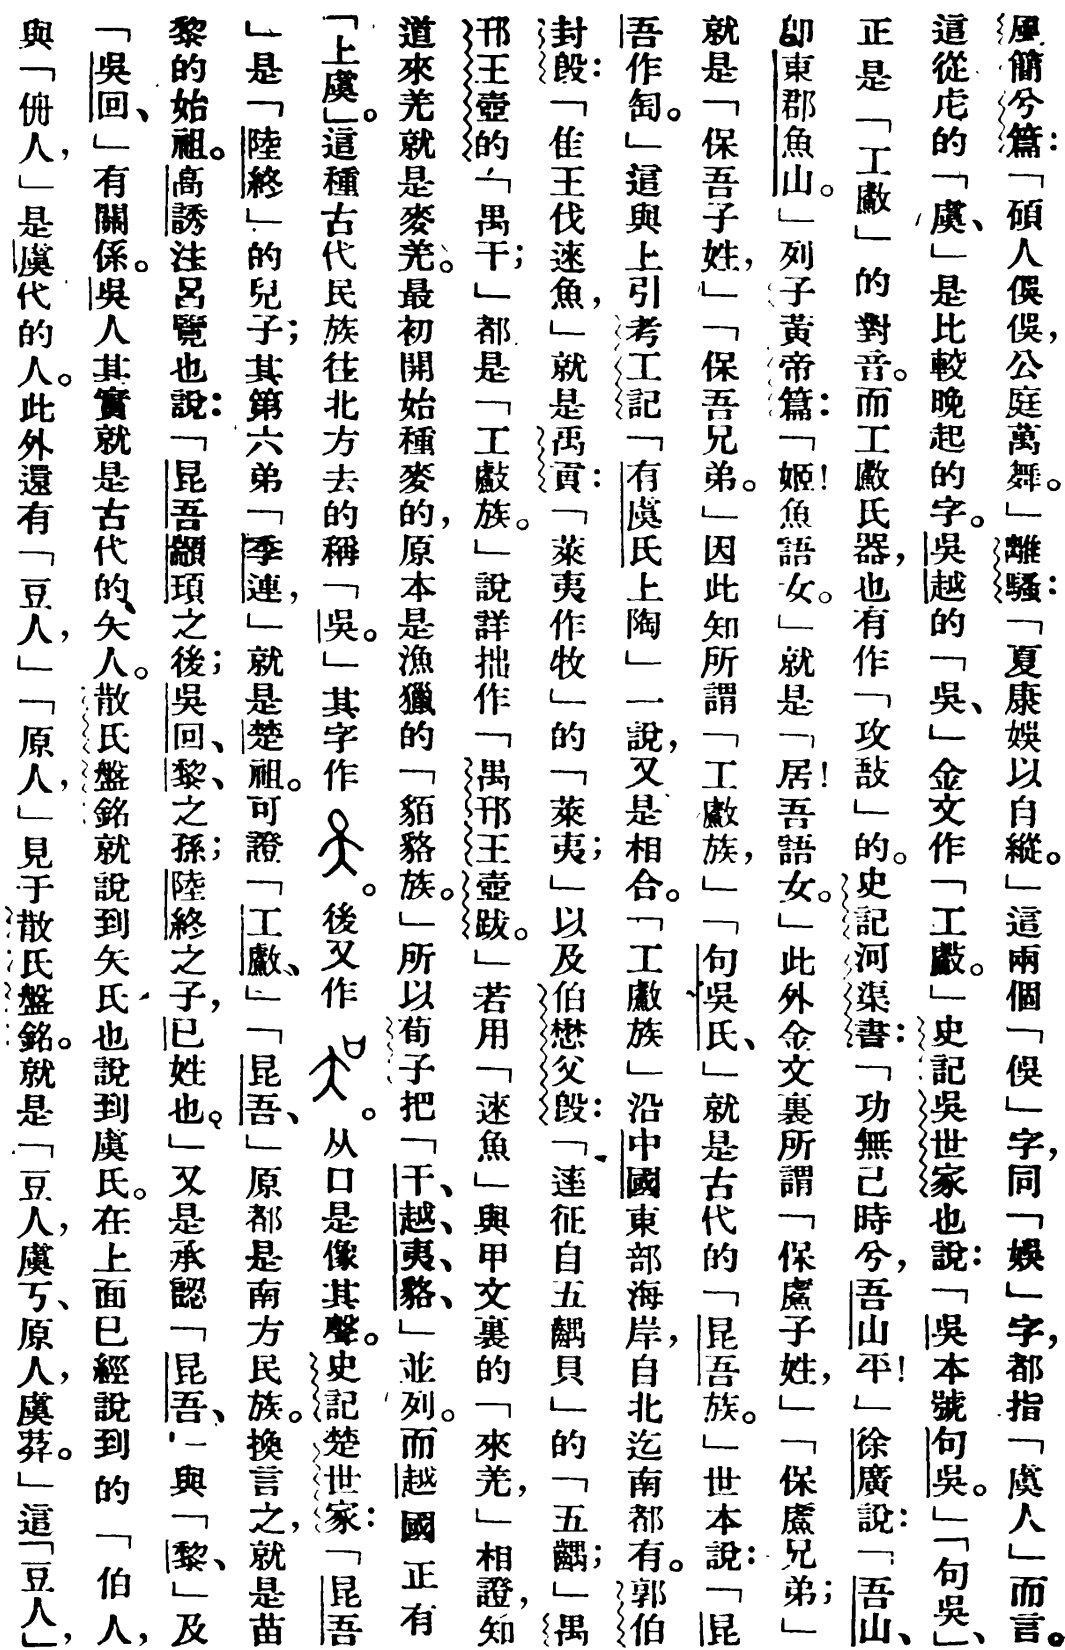 風簡兮篇：「碩人俁俁，公庭萬舞。」離騷：「夏康娛以自縱。」這兩個「俁」字，同「娛」字，都指「虞人」而言。
這從虍的「虞、」是比較晚起的字。吳越的「吳、」金文作「工䱷。」史記吳世家也說：「吳本號句吳。」「句吳、」
正是「工䱷」的對音。而工䱷氏器，也有作「攻敔」的。史記河渠書：「功無已時兮，吾山平！」徐廣說：「吾山、
卽東郡魚山。」列子黃帝篇：「姬！魚語女。」就是「居！吾語女。」此外金文裏所謂「保䖒子姓，」「保䖒兄弟；」
就是「保吾子姓，」「保吾兄弟。」因此知所謂「工䱷族，」「句吳氏、」就是古代的「昆吾族。」世本說：「昆
吾作匋。」這與上引考工記「有虞氏上陶」一說，又是相合。「工䱷族」沿中國東部海岸，自北迄南都有。郭伯
封𣪘：「隹王伐逨魚，」就是禹貢：「萊夷作牧」的「萊夷；」以及伯懋父𣪘：「逹征自五齵貝」的「五齵；」禺
邗王壺的「禺干；」都是「工䱷族。」說詳拙作「禺邗王壺跋。」若用「逨魚」與甲文裏的「來羌，」相證，知
道來羌就是麥羌。最初開始種麥的，原本是漁獵的「貊貉族。」所以荀子把「干、越、夷、貉、」並列。而越國正有
「上虞。」這種古代民族往北方去的稱「吳。」其字作。後又作。从口是像其聲。史記楚世家：「昆吾
」是「陸終」的兒子；其第六弟「季連，」就是楚祖。可證「工䱷、」「昆吾、」原都是南方民族。換言之，就是苗
黎的始祖。高誘注呂覽也說：「昆吾顓頊之後；吳回、黎之孫；陸終之子，已姓也。」又是承認「昆吾、」與「黎、」及
「吳回、」有關係。吳人其實就是古代的、夨人。散氏盤銘就說到夨氏，也說到虞氏。在上面已經說到的「伯人，
與「佣人，」是虞代的人。此外還有「豆人，」「原人，」見于散氏盤銘。就是「豆人，虞丂、原人，虞莽。」這「豆人」，